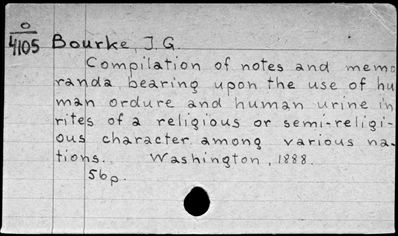 O
4105 Bourke, J.G.
Compilation of notes and memo
randa bearing upon the use of hu
man ordure and human urine in
rites of a religious or semi-religi-
ous character among various na-
tions. Washington, 1888.
56p.